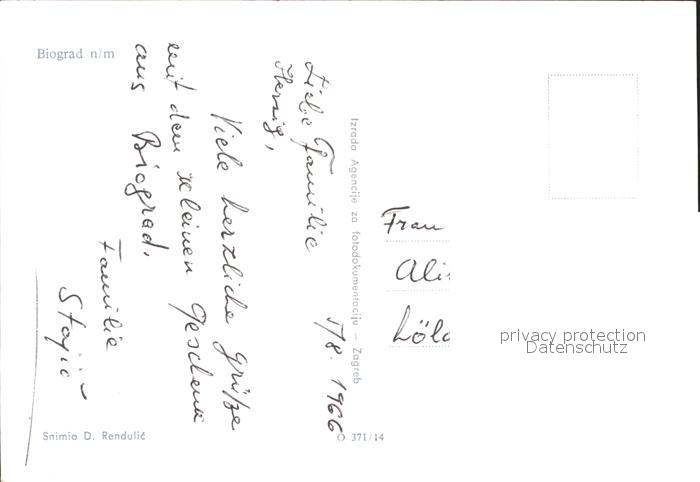 Biograd n/m
5/8. 1966
Liebe Familie
Herzig,
Viele herzliche Grüße
mit dem kleinen Geschenk
aus Biograd.
Familie
Stojić
Snimio D. Rendulić
Izrada Agencije za fotodokumentaciju – Zagreb
O 371/14
Frau
privacy protection
Datenschutz